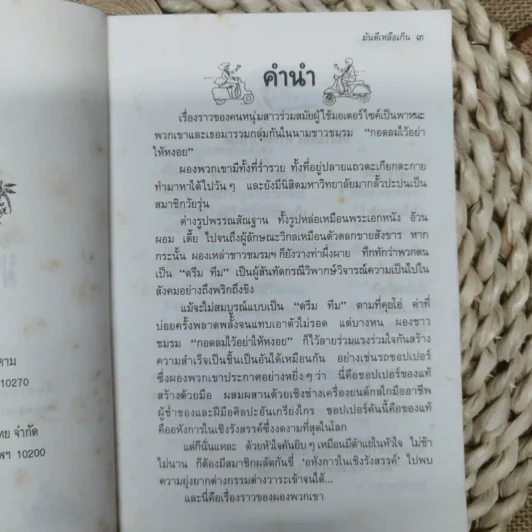 าคาม
10270
ทย จำกัด
ทพฯ 10200
มันดีเหลือเกิน ๓
คำนำ
เรื่องราวของคนหนุ่มสาวร่วมสมัยผู้ใช้มอเตอร์ไซค์เป็นพาหนะ
พวกเขาและเธอมารวมกลุ่มกันในนามชาวชมรม "กอดลมไว้อย่า
ให้หงอย"
ผองพวกเขามีทั้งที่ร่ำรวย ทั้งที่อยู่ปลายแถวตะเกียกตะกาย
ทำมาหาได้ไปวันๆ และยังมีนิสิตมหาวิทยาลัยมากลั้วปะปนเป็น
สมาชิกวัยรุ่น
ต่างรูปพรรณสัณฐาน ทั้งรูปหล่อเหมือนพระเอกหนัง อ้วน
ผอม เตี้ย ไปจนถึงผู้ลักษณะวิกลเหมือนตัวตลกขายสังขาร หาก
กระนั้น ผองเหล่าชาวชมรมฯ ก็ยังวางท่าผึ่งผาย ทึกทักว่าพวกตน
เป็น "ดรีม ทีม" เป็นผู้สันทัดกรณีวิพากษ์วิจารณ์ความเป็นไปใน
สังคมอย่างถึงพริกถึงขิง
แม้จะไม่สมบูรณ์แบบเป็น "ดรีม ทีม" ตามที่คุยโอ่ ค่าที่
บ่อยครั้งพลาดพลั้งจนแทบเอาตัวไม่รอด แต่บางหน ผองชาว
ชมรม "กอดลมไว้อย่าให้หงอย" ก็ไว้ลายร่วมแรงร่วมใจกันสร้าง
ความสำเร็จเป็นชิ้นเป็นอันได้เหมือนกัน อย่างเช่นรถชอปเปอร์
ซึ่งผองพวกเขาประกาศอย่างหยิ่งๆ ว่า นี่คือชอปเปอร์ของแท้
สร้างด้วยมือ ผสมผสานด้วยเชิงช่างเครื่องยนต์กลไกมืออาชีพ
ผู้ช่ำชองและฝีมือศิลปะอันเกรียงไกร ชอปเปอร์คันนี้คือของแท้
คืออหังการในเชิงรังสรรค์ซึ่งงดงามที่สุดในโลก
แต่ก็นั่นแหละ ด้วยหัวใจคันยิบๆ เหมือนมีตำแยในหัวใจ ไม่ช้า
ไม่นาน ก็ต้องมีสมาชิกผลัดกันขี่ 'อหังการในเชิงรังสรรค์' ไปพบ
ความยุ่งยากต่างกรรมต่างวาระเข้าจนได้...
และนี่คือเรื่องราวของผองพวกเขา